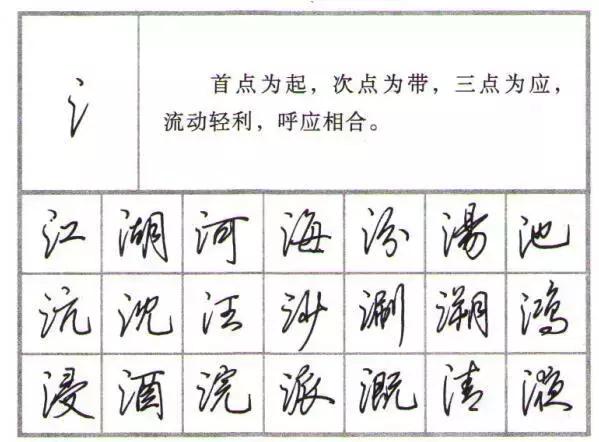 氵
首点为起，次点为带，三点为应，
流动轻利，呼应相合。
江 湖 河 海 汾 湯 池
沆 沈 汪 沙 涮 溯 鸿
浸 酒 浣 派 溉 清